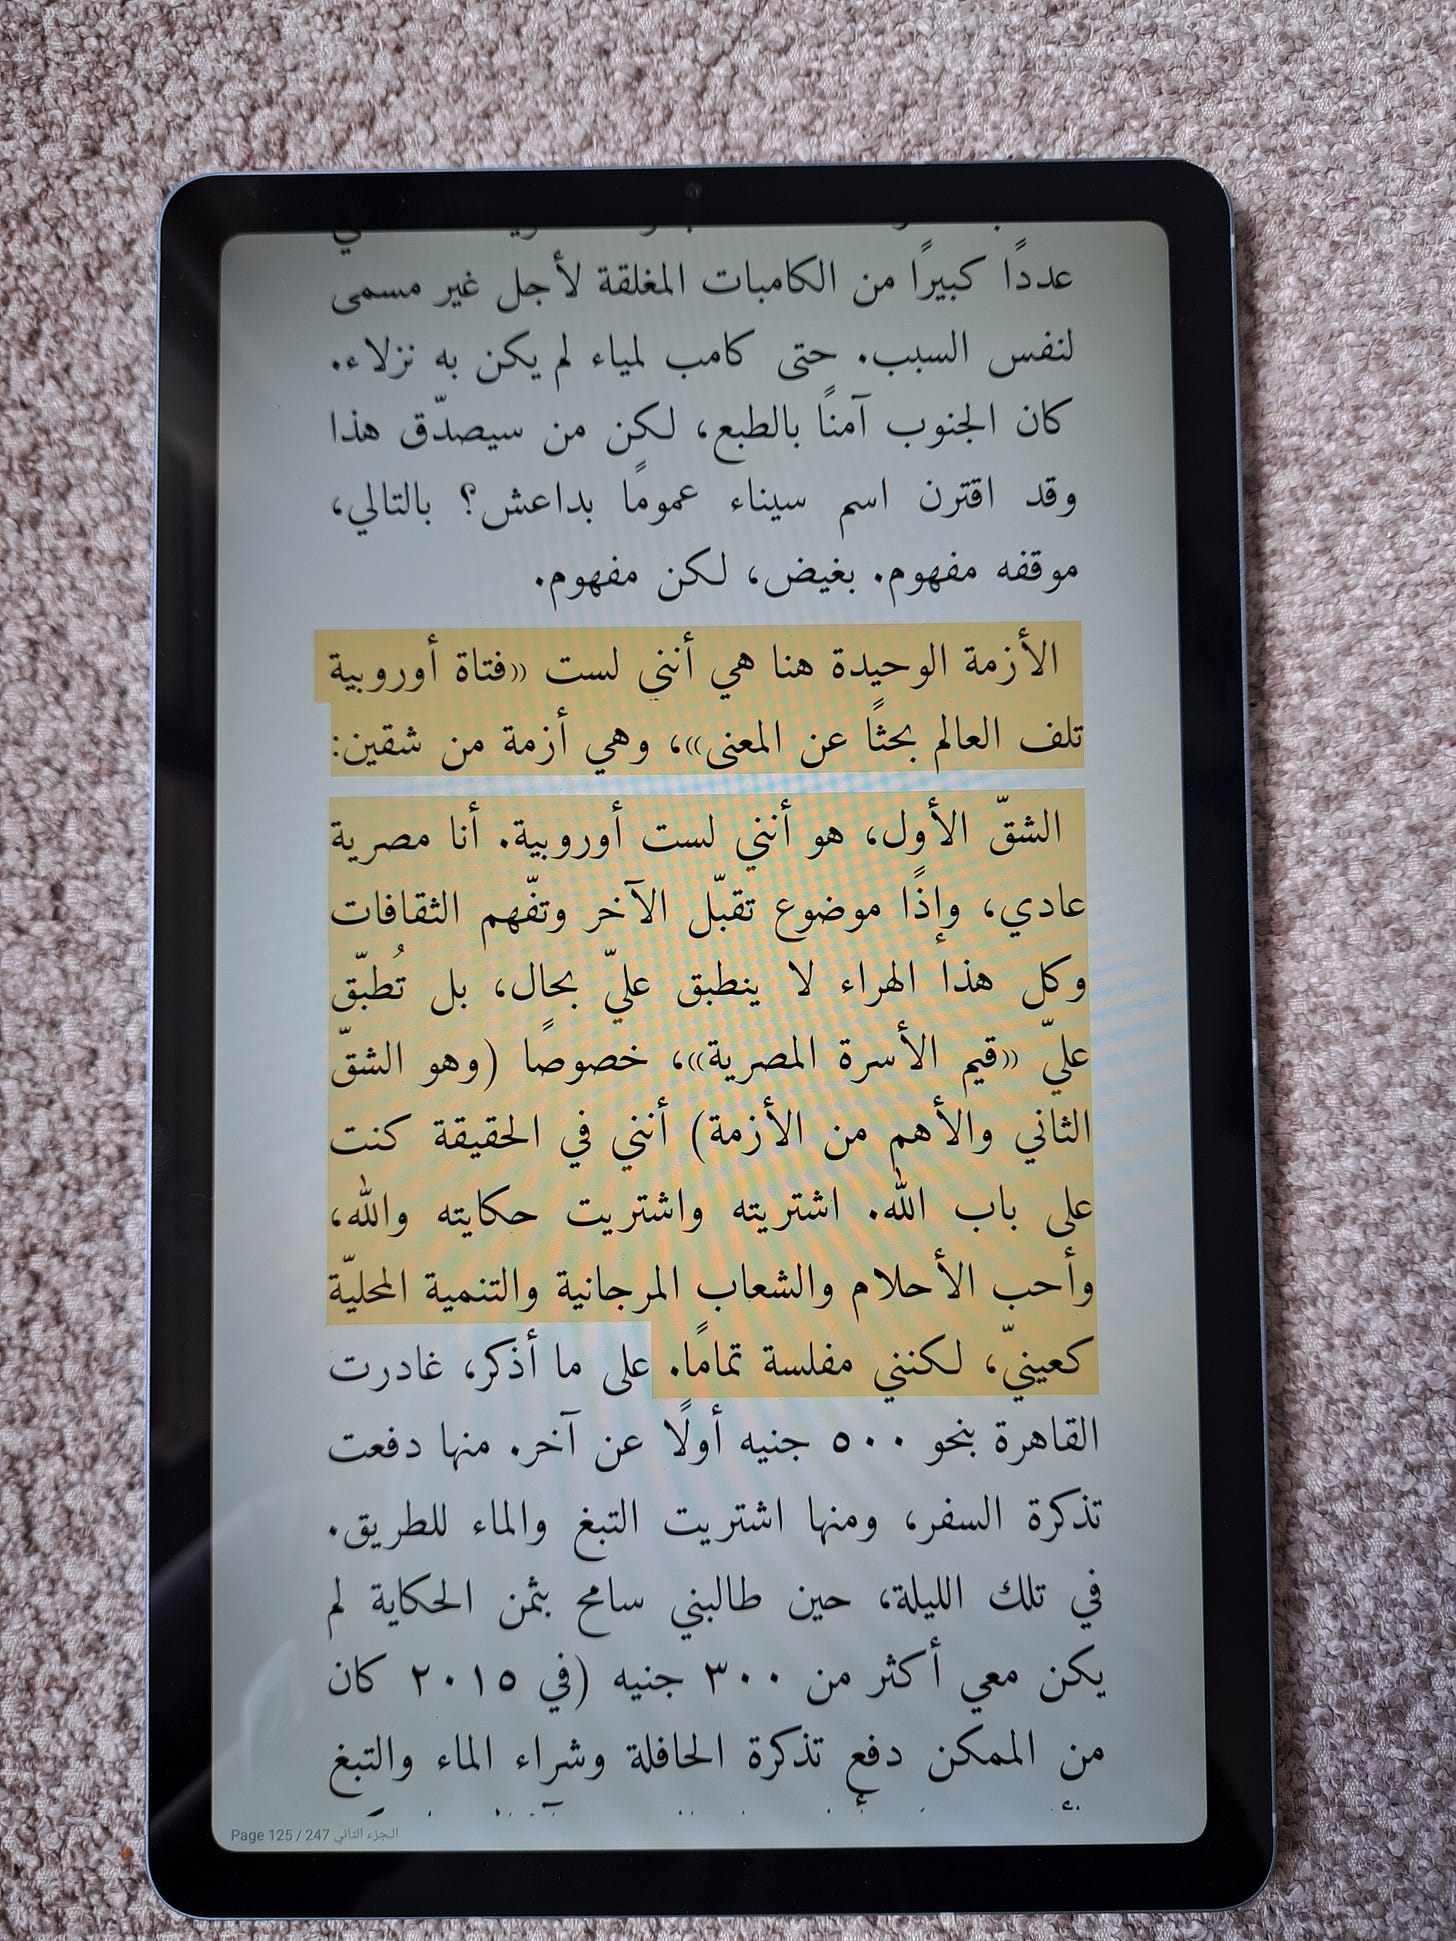 عددًا كبيرًا من الكامبات المغلقة لأجل غير مسمى
لنفس السبب. حتى كامب لمياء لم يكن به نزلاء.
كان الجنوب آمنًا بالطبع، لكن من سيصدّق هذا
وقد اقترن اسم سيناء عمومًا بداعش؟ بالتالي،
موقفه مفهوم. بغيض، لكن مفهوم.
الأزمة الوحيدة هنا هي أنني لست «فتاة أوروبية
تلف العالم بحثًا عن المعنى»، وهي أزمة من شقين:
الشقّ الأول، هو أنني لست أوروبية. أنا مصرية
عادي، وإذًا موضوع تقبّل الآخر وتفّهم الثقافات
وكل هذا الهراء لا ينطبق عليّ بحال، بل تُطبّق
عليّ «قيم الأسرة المصرية»، خصوصًا (وهو الشقّ
الثاني والأهم من الأزمة) أنني في الحقيقة كنت
على باب الله. اشتريته واشتريت حكايته والله،
وأحب الأحلام والشعاب المرجانية والتنمية المحليّة
كعينيّ، لكنني مفلسة تمامًا. على ما أذكر، غادرت
القاهرة بنحو ٥٠٠ جنيه أولًا عن آخر. منها دفعت
تذكرة السفر، ومنها اشتريت التبغ والماء للطريق.
في تلك الليلة، حين طالبني سامح بثمن الحكاية لم
يكن معي أكثر من ٣٠٠ جنيه (في ٢٠١٥ كان
من الممكن دفع تذكرة الحافلة وشراء الماء والتبغ
Page 125 / 247 الجزء الثاني